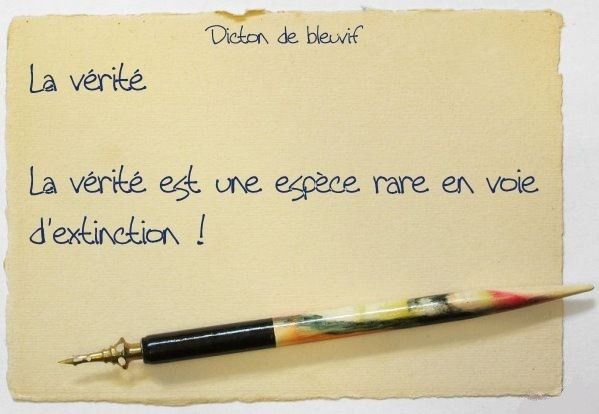 Dicton de bleuvif
La vérité
La vérité est une espèce rare en voie
d'extinction !